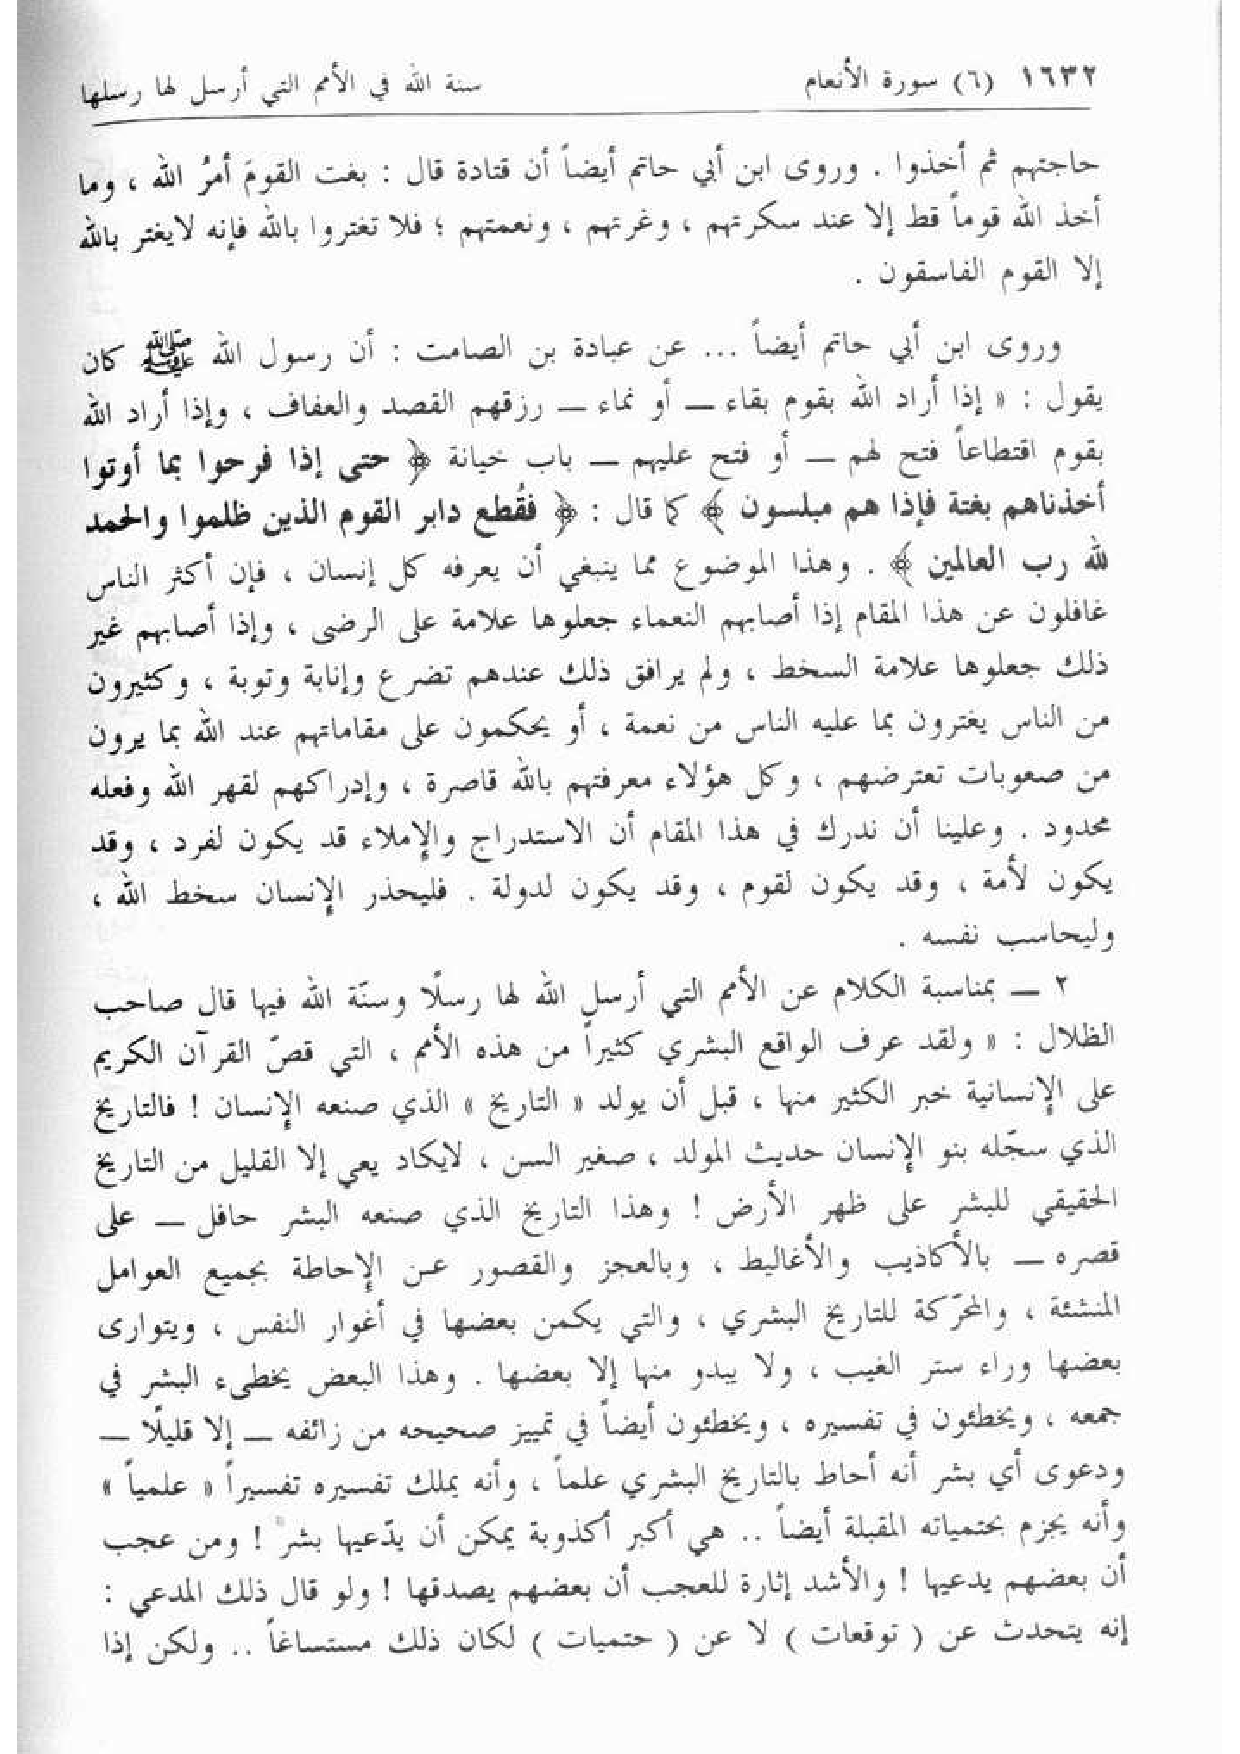 ١٦٣٢ (٦) سورة الأنعام سنة الله في الأمم التي أرسل لها رسلها
حاجتهم ثم أخذوا . وروى ابن أبي حاتم أيضاً أن قتادة قال : بغت القومَ أمرُ الله ، وما
أخذ الله قوماً قط إلا عند سكرتهم ، وغرتهم ، ونعمتهم ؛ فلا تغتروا بالله فإنه لايغتر بالله
إلا القوم الفاسقون .
وروى ابن أبي حاتم أيضاً ... عن عبادة بن الصامت : أن رسول الله ﷺ كان
يقول : « إذا أراد الله بقوم بقاء ــ أو نماء ــ رزقهم القصد والعفاف ، وإذا أراد الله
بقوم اقتطاعاً فتح لهم ــ أو فتح عليهم ــ باب خيانة ﴿ حتى إذا فرحوا بما أوتوا
أخذناهم بغتة فإذا هم مبلسون ﴾ كما قال : ﴿ فقُطع دابر القوم الذين ظلموا والحمد
لله رب العالمين ﴾ . وهذا الموضوع مما ينبغي أن يعرفه كل إنسان ، فإن أكثر الناس
غافلون عن هذا المقام إذا أصابهم النعماء جعلوها علامة على الرضى ، وإذا أصابهم غير
ذلك جعلوها علامة السخط ، ولم يرافق ذلك عندهم تضرع وإنابة وتوبة ، وكثيرون
من الناس يغترون بما عليه الناس من نعمة ، أو يحكمون على مقاماتهم عند الله بما يرون
من صعوبات تعترضهم ، وكل هؤلاء معرفتهم بالله قاصرة ، وإدراكهم لقهر الله وفعله
محدود . وعلينا أن ندرك في هذا المقام أن الاستدراج والإملاء قد يكون لفرد ، وقد
يكون لأمة ، وقد يكون لقوم ، وقد يكون لدولة . فليحذر الإنسان سخط الله ،
وليحاسب نفسه .
٢ ــ بمناسبة الكلام عن الأمم التي أرسل الله لها رسلًا وسنّة الله فيها قال صاحب
الظلال : « ولقد عرف الواقع البشري كثيراً من هذه الأمم ، التي قصّ القرآن الكريم
على الإنسانية خبر الكثير منها ، قبل أن يولد « التاريخ » الذي صنعه الإنسان ! فالتاريخ
الذي سجّله بنو الإنسان حديث المولد ، صغير السن ، لايكاد يعي إلا القليل من التاريخ
الحقيقي للبشر على ظهر الأرض ! وهذا التاريخ الذي صنعه البشر حافل ــ على
قصره ــ بالأكاذيب والأغاليط ، وبالعجز والقصور عن الإحاطة بجميع العوامل
المنشئة ، والمحرّكة للتاريخ البشري ، والتي يكمن بعضها في أغوار النفس ، ويتوارى
بعضها وراء ستر الغيب ، ولا يبدو منها إلا بعضها . وهذا البعض يخطىء البشر في
جمعه ، ويخطئون في تفسيره ، ويخطئون أيضاً في تمييز صحيحه من زائفه ــ إلا قليلًا ــ
ودعوى أي بشر أنه أحاط بالتاريخ البشري علماً ، وأنه يملك تفسيره تفسيراً « علمياً »
وأنه يجزم بحتمياته المقبلة أيضاً .. هي أكبر أكذوبة يمكن أن يدّعيها بشر ! ومن عجب
أن بعضهم يدعيها ! والأشد إثارة للعجب أن بعضهم يصدقها ! ولو قال ذلك المدعي :
إنه يتحدث عن ( توقعات ) لا عن ( حتميات ) لكان ذلك مستساغاً .. ولكن إذا